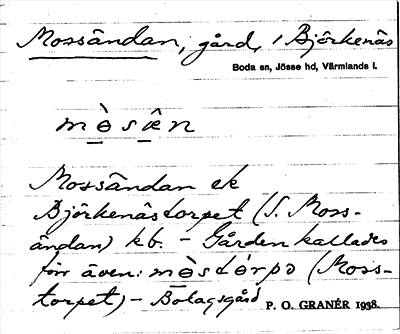 Mossändan, gård, i Björkenäs
Boda sn, Jösse hd, Värmlands l.
mɵ̀sæ̂n
Mossändan ek
Björkenästorpet (S. Moss-
ändan) kb. - Gården kallades
förr även: mɵ̀stɵ́rpə (Moss-
torpet) - Bolagsgård
P. O. GRANÉR 1938.